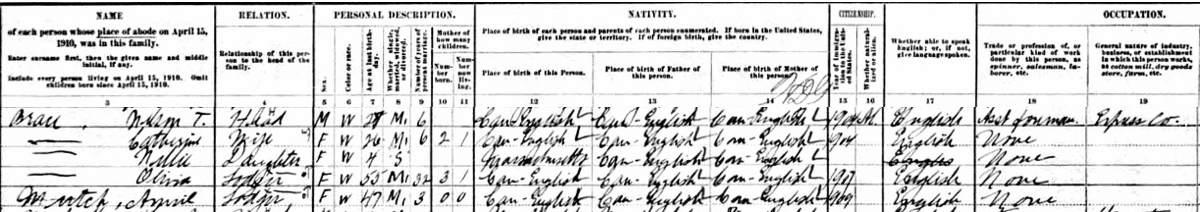 NAME RELATION. PERSONAL DESCRIPTION. NATIVITY. CITIZENSHIP. OCCUPATION.
of each person whose place of abode on April 15, 1910, was in this family.
Enter surname first, then the given name and middle initial, if any.
Include every person living on April 15, 1910. Omit children born since April 15, 1910.
Relationship of this person to the head of the family.
Sex.
Color or race.
Age at last birthday.
Whether single, married, widowed, or divorced.
Number of years of present marriage.
Mother of how many children.
Number born.
Number now living.
Place of birth of each person and parents of each person enumerated. If born in the United States, give the state or territory. If of foreign birth, give the country.
Place of birth of this Person.
Place of birth of Father of this person.
Place of birth of Mother of this person.
Year of immigration to the United States.
Whether naturalized or alien.
Whether able to speak English; or, if not, give language spoken.
Trade or profession of, or particular kind of work done by this person, as spinner, salesman, laborer, etc.
General nature of industry, business, or establishment in which this person works, as cotton mill, dry goods store, farm, etc.
3 4 5 6 7 8 9 10 11 12 13 14 15 16 17 18 19
Nelson T. Head M W 6 Can-English Can-English Can-English English Asst foreman Express Co.
— Catherine Wife F W 26 M1 6 2 1 Can-English Can-English Can-English 1904 English None
— Nellie Daughter F W 4 S Massachusetts Can-English Can-English None
— Olivia Lodger F W 55 M1 32 3 1 Can-English Can-English Can-English 1907 English None
Mutch, Annie Lodger F W 47 M1 3 0 0 Can-English Can-English Can-English 1909 English None